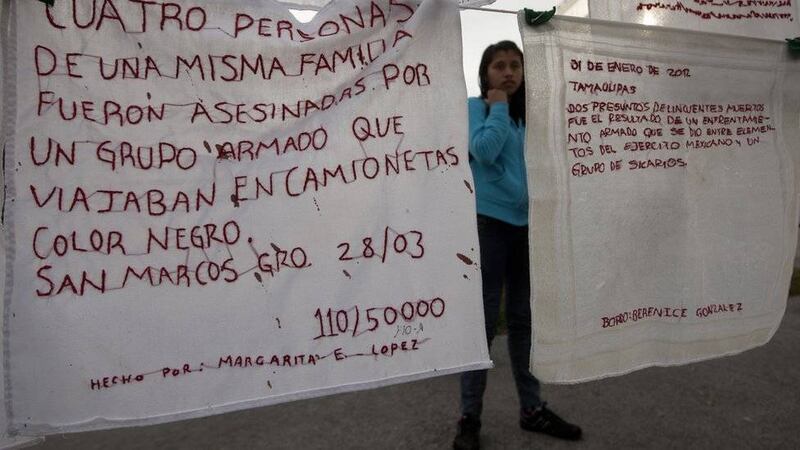 CUATRO PERSONAS
DE UNA MISMA FAMILIA
FUERON ASESINADAS POR
UN GRUPO ARMADO QUE
VIAJABAN EN CAMIONETAS
COLOR NEGRO.
SAN MARCOS GRO. 28/03
110/50000
110-A
HECHO POR: MARGARITA E. LOPEZ
01 DE ENERO DE 2012
TAMAULIPAS
DOS PRESUNTOS DELINCUENTES MUERTOS
FUE EL RESULTADO DE UN ENFRENTAMIE-
NTO ARMADO QUE SE DIO ENTRE ELEMEN-
TOS DEL EJERCITO MEXICANO Y UN
GRUPO DE SICARIOS.
BORDO: BERENICE GONZALEZ